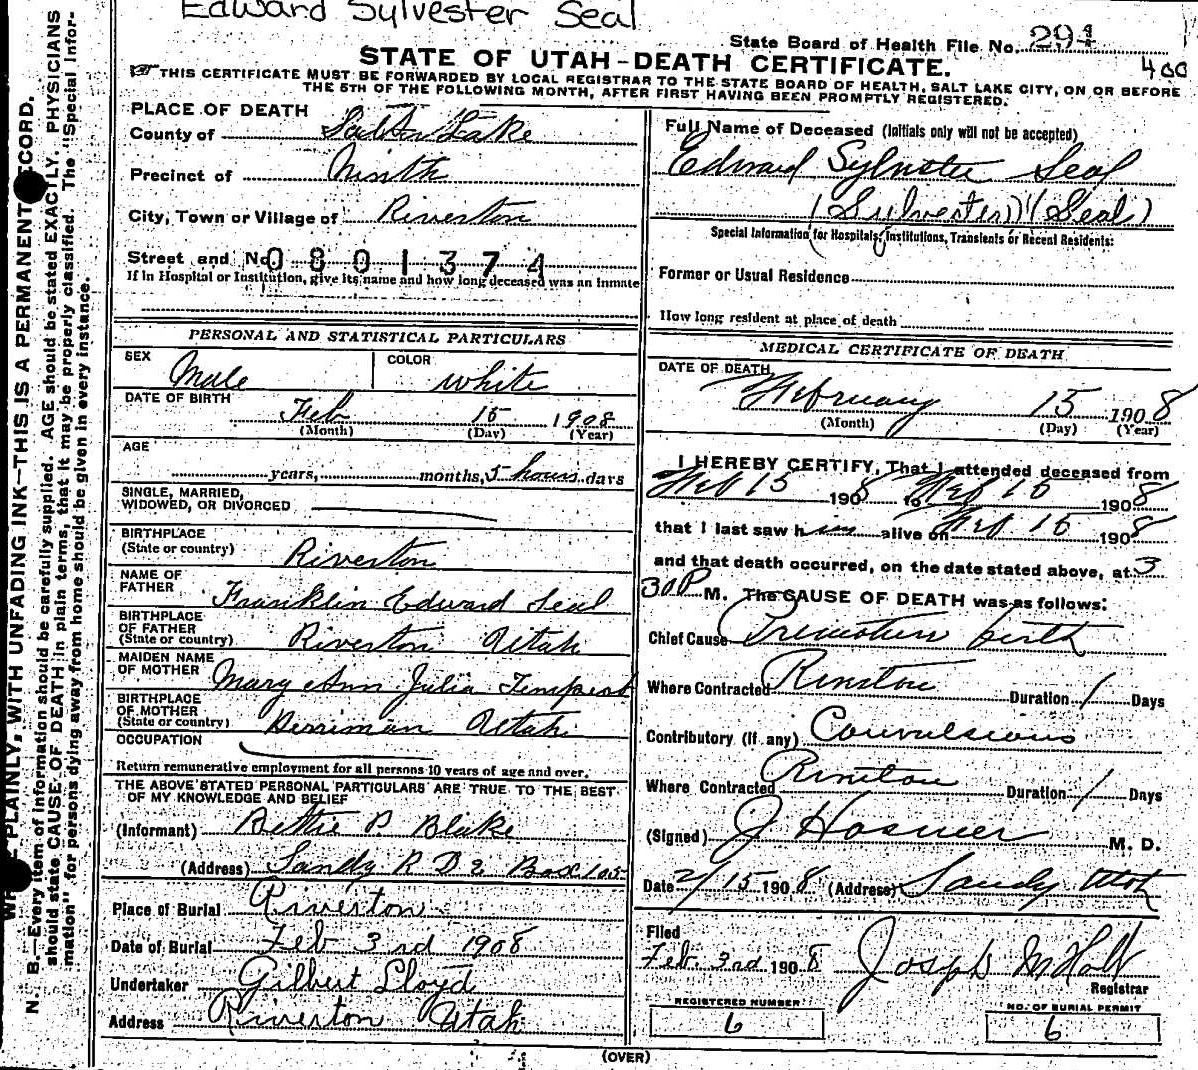 Edward Sylvester Seal
State Board of Health File No. 294
400
STATE OF UTAH-DEATH CERTIFICATE.
THIS CERTIFICATE MUST BE FORWARDED BY LOCAL REGISTRAR TO THE STATE BOARD OF HEALTH, SALT LAKE CITY, ON OR BEFORE
THE 5TH OF THE FOLLOWING MONTH, AFTER FIRST HAVING BEEN PROMPTLY REGISTERED.
PLACE OF DEATH
County of Salt Lake
Precinct of Ninth
City, Town or Village of Riverton
Street and No. 0801374
If in Hospital or Institution, give its name and how long deceased was an inmate
PERSONAL AND STATISTICAL PARTICULARS
SEX Male COLOR White
DATE OF BIRTH
Feb 15 1908
(Month) (Day) (Year)
AGE
years, months, 5 hours days
SINGLE, MARRIED,
WIDOWED, OR DIVORCED
BIRTHPLACE
(State or country) Riverton
NAME OF
FATHER Franklin Edward Seal
BIRTHPLACE
OF FATHER
(State or country) Riverton Utah
MAIDEN NAME
OF MOTHER Mary Ann Julia Tempest
BIRTHPLACE
OF MOTHER
(State or country) Herriman Utah
OCCUPATION
Return remunerative employment for all persons 10 years of age and over.
THE ABOVE STATED PERSONAL PARTICULARS ARE TRUE TO THE BEST
OF MY KNOWLEDGE AND BELIEF
(Informant) Bettie P Blake
(Address) Sandy R D 2 Box 105
Place of Burial Riverton
Date of Burial Feb 3rd 1908
Undertaker Gilbert Lloyd
Address Riverton Utah
Full Name of Deceased (Initials only will not be accepted)
Edward Sylvster Seal
(Sylvester) (Seal)
Special Information for Hospitals, Institutions, Transients or Recent Residents:
Former or Usual Residence
How long resident at place of death
MEDICAL CERTIFICATE OF DEATH
DATE OF DEATH
February 15 1908
(Month) (Day) (Year)
I HEREBY CERTIFY, That I attended deceased from
Feb 15 1908 to Feb 15 1908
that I last saw h im alive on Feb 15 1908
and that death occurred, on the date stated above, at 3
30 P M. The CAUSE OF DEATH was as follows:
Chief Cause Premature birth
Where Contracted Riverton Duration 1 Days
Contributory (if any) Convulsions
Where Contracted Riverton Duration 1 Days
(Signed) J Hosmer M. D.
Date 2/15 1908 (Address) Sandy Utah
Filed
Feb. 3rd 1908 Joseph M Holt
Registrar
REGISTERED NUMBER
6
NO. OF BURIAL PERMIT
6
(OVER)
PLAINLY, WITH UNFADING INK—THIS IS A PERMANENT RECORD.
N. B.—Every item of information should be carefully supplied. AGE should be stated EXACTLY. PHYSICIANS
should state CAUSE OF DEATH in plain terms, that it may be properly classified. The "Special Infor-
mation" for persons dying away from home should be given in every instance.